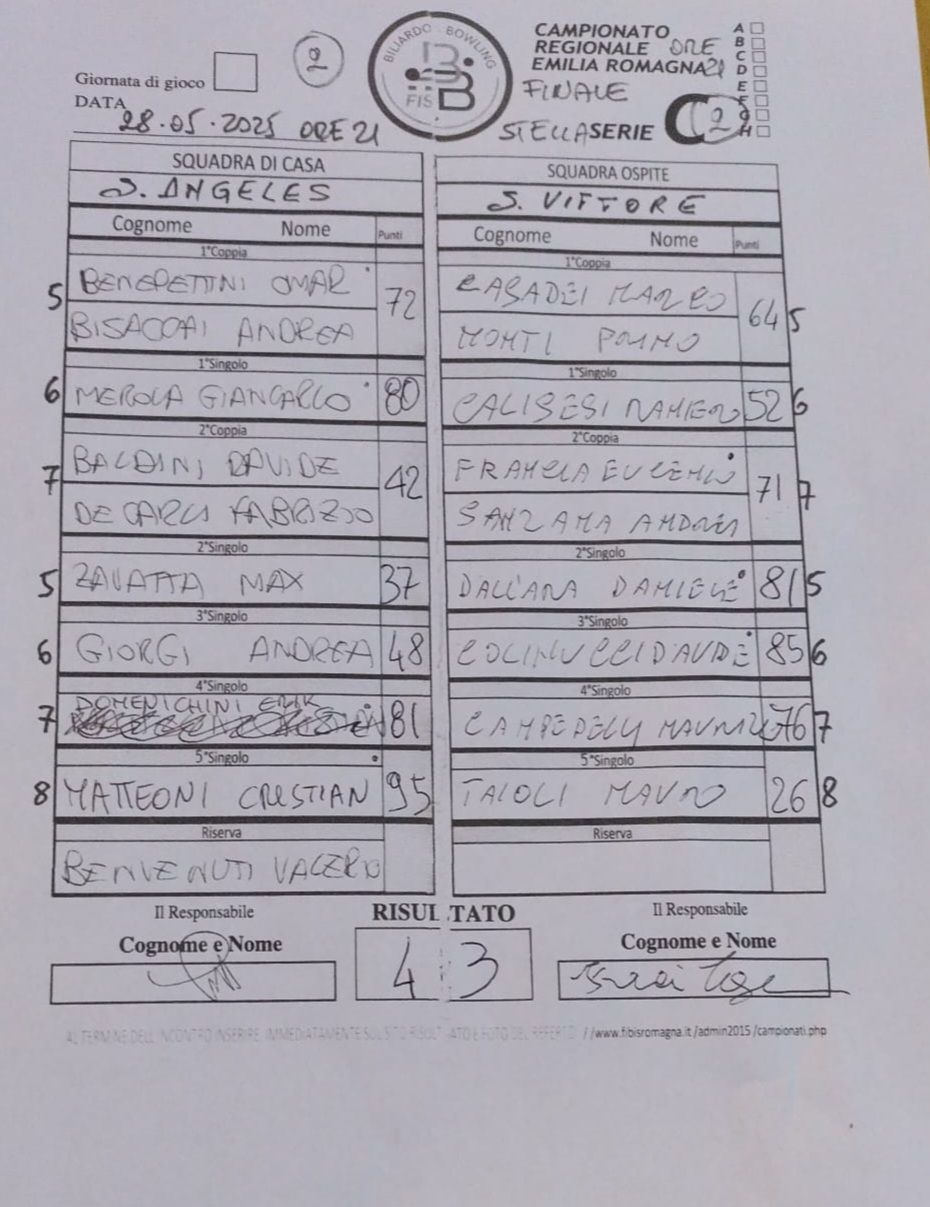 Giornata di gioco
2
DATA
28.05.2025 ORE 21
BILIARDO BOWLING
FIS B
CAMPIONATO
REGIONALE ORE
EMILIA ROMAGNA 21
FINALE
STELLA SERIE C 2
A
B
C
D
E
F
G
H
SQUADRA DI CASA
S. ANGELES
Cognome Nome Punti
1°Coppia
5 BENEDETTINI OMAR 72
BISACCAI ANDREA
1°Singolo
6 MEROLA GIANCARLO 80
2°Coppia
7 BALDINI DAVIDE 42
DE CARLI FABRIZIO
2°Singolo
5 ZAVATTA MAX 37
3°Singolo
6 GIORGI ANDREA 48
4°Singolo
7 DOMENICHINI ERIK 81
5°Singolo
8 MATTEONI CRISTIAN 95
Riserva
BENVENUTI VALERIO
SQUADRA OSPITE
S. VITTORE
Cognome Nome Punti
1°Coppia
CASADEI MARCO 64 5
MONTI
1°Singolo
CALISESI 52 6
2°Coppia
FRANCIA EUGENIO 71 7
SANZANA ANDREA
2°Singolo
DALL'ARA DANIELE 81 5
3°Singolo
COLINUCCI DAVIDE 85 6
4°Singolo
CAMPEDELLI MAURIZIO 76 7
5°Singolo
TAIOLI MAURO 26 8
Riserva
Il Responsabile
Cognome e Nome
RISULTATO
4 3
Il Responsabile
Cognome e Nome
AL TERMINE DELL'INCONTRO INSERIRE IMMEDIATAMENTE SUL SITO RISULTATO E FOTO DEL REFERTO //www.fibisromagna.it/admin2015/campionati.php